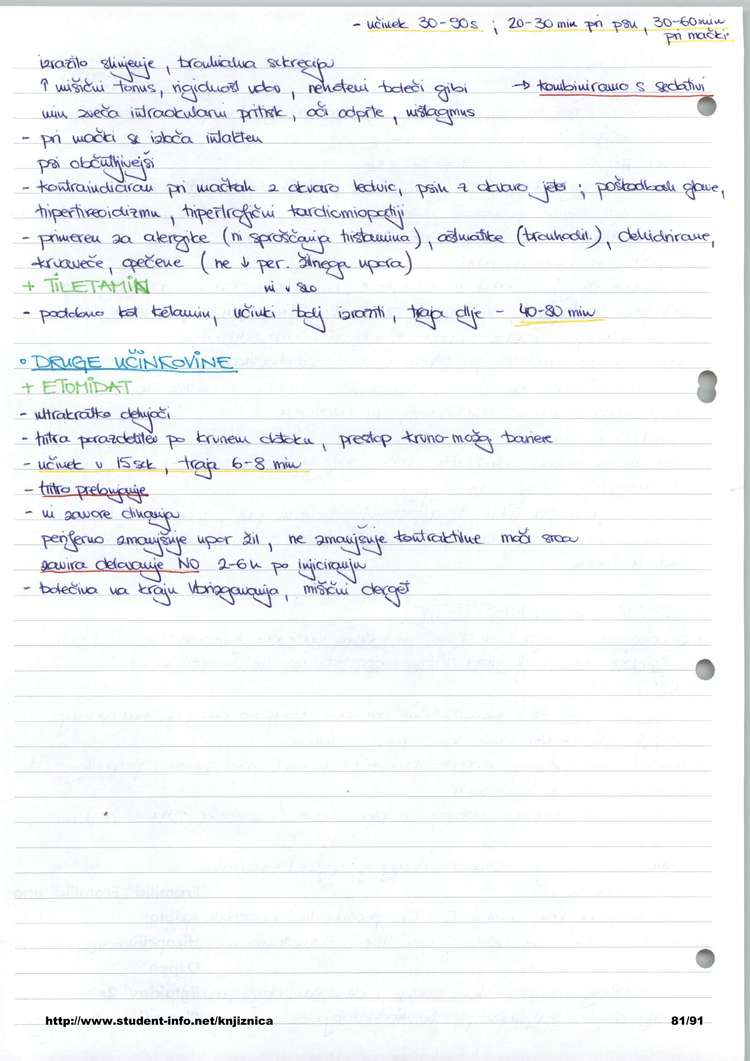 - učinek 30-90s ; 20-30 min pri psu, 30-60 min
pri mački
izrazito slinjenje, bronhialna sekrecija
↑ mišični tonus, rigidnost udov, nehoteni boleči gibi → kombiniramo s sedativi
zveča intraokularni pritisk, oči odprte, nistagmus
- pri mački se izloča intakten
psi občutljivejši
- kontraindiciran pri mačkah z okvaro ledvic, psih z okvaro jeter ; poškodbah glave,
hipertireoidizmu, hipertrofični kardiomiopatiji
- primeren za alergike (ni sproščanja histamina), astmatike (bronhodil.), dehidrirane,
krvaveče, opečene (ne ↓ per. žilnega upora)
+ TILETAMIN ni v SLO
- podobno kot ketamin, učinki bolj izraziti, traja dlje - 40-80 min
• DRUGE UČINKOVINE
+ ETOMIDAT
- ultrakratko delujoči
- hitra porazdelitev po krvnem obtoku, prestop krvno-možg. bariere
- učinek v 15 sek, traja 6-8 min
- hitro prebujanje
- ni zavore dihanja
periferno zmanjšuje upor žil, ne zmanjšuje kontraktilne moči srca
zavira delovanje NO 2-6h po injiciranju
- bolečina na kraju vbrizgavanja, mišični drget
http://www.student-info.net/knjiznica 81/91